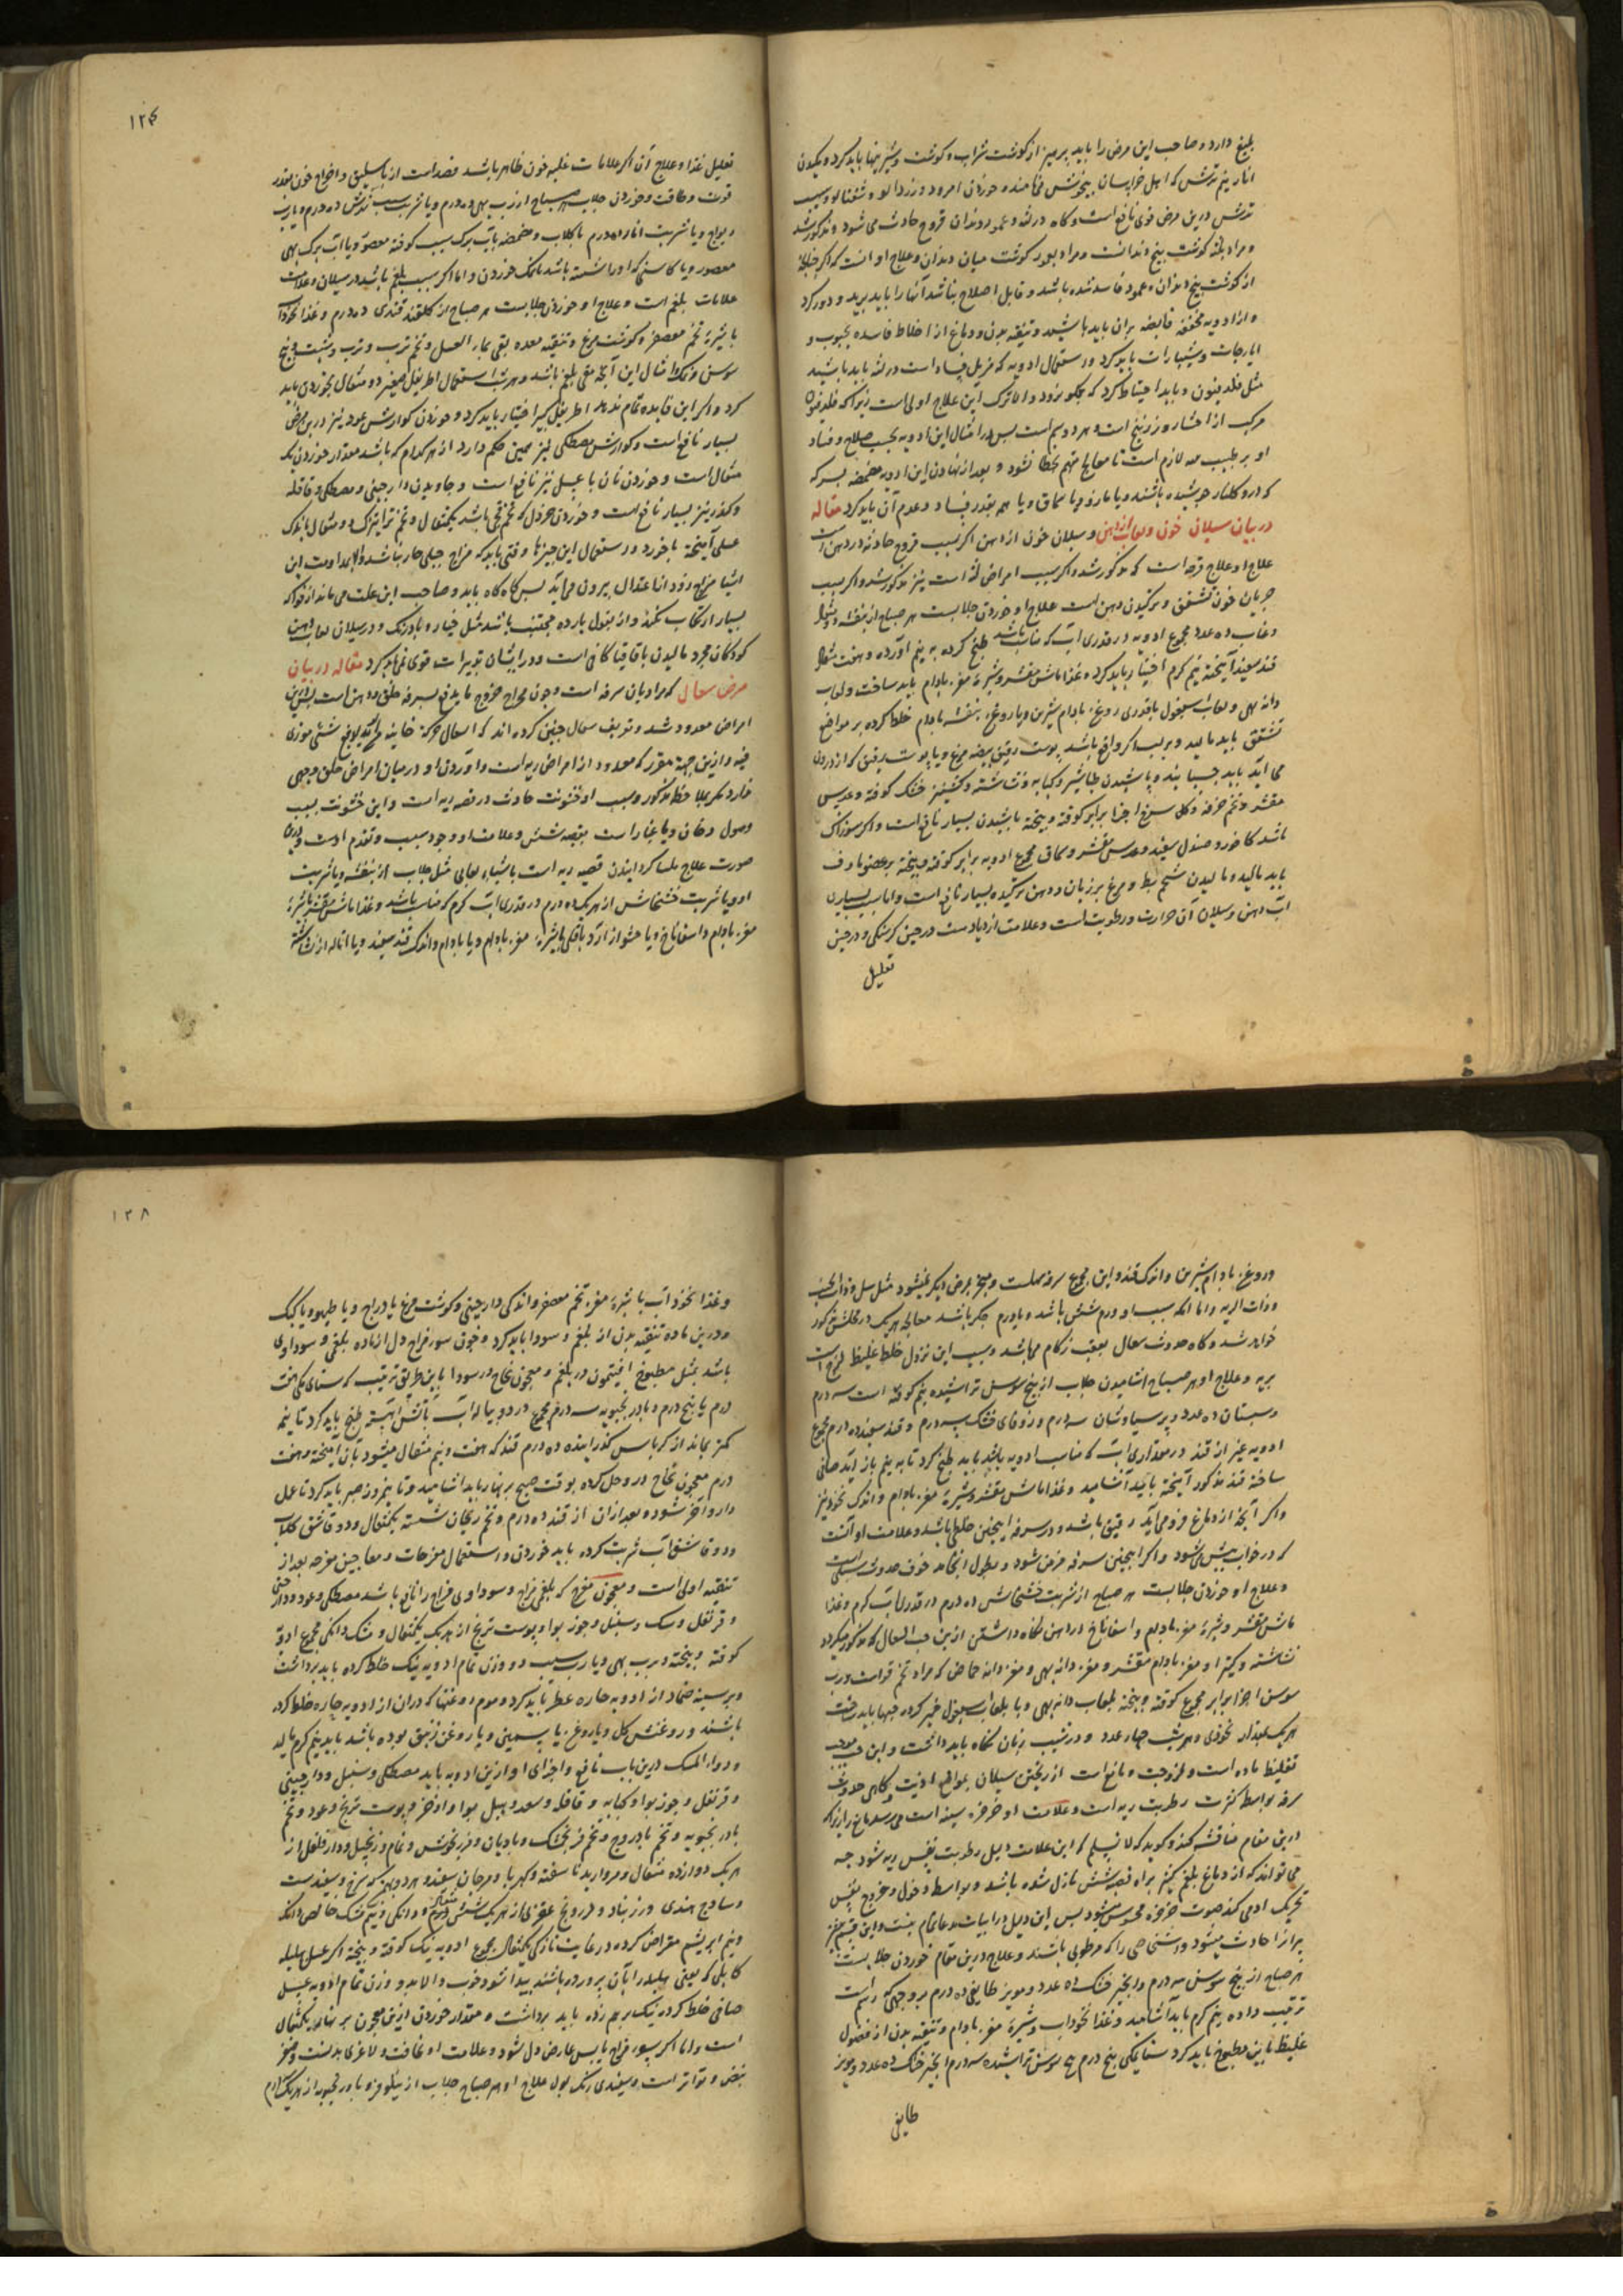 بلیغ دارد و صاحب این مرض را باید پرهیز از گوشت شراب و گوشت و شیرینیها باید کرد و مکیدن
انار نیم ترش که اهل خراسان میخوش می نامند و خوردن امرود و زردالو و شفتالو و سیب
ترش درین مرض قوی نافع است و کاه در لثه و عمود دندان قروح حادث می شود و مذکور شد
و مراد بلثه گوشت بیخ دندانست و مراد بعمور گوشت میان دندان و علاج او انست که اگر
از گوشت بیخ دندان و عمود فاسد شده باشد و قابل اصلاح نباشد آنها را باید برید و دور کرد
و از ادویه مجففه قابضه بران باید پاشید و تنقیه بدن و دماغ از اخلاط فاسده بحبوب و
ایارجات و شبیارات باید کرد و استعمال ادویه که مزیل فساد است در لثه باید پاشید
مثل فلدفیون و باید احتیاط کرد که بگلو نرود و الا ترک این علاج اولی است زیرا که فلدفیون
مرکب از اخشار و زرنیخ است و هر دو سم است پس در امثال این ادویه بحسب صلاح و فساد
او بر طبیب لازم است تا معالج متهم بخطا نشود و بعد از نهادن این ادویه مضمضه بسرکه
که درو گلنار جوشیده باشند و یا مازو و یا سماق و یا هم بقدر فساد و عدم آن باید کرد مقاله
در بیان سیلان خون و لعاب از دهن و سیلان خون از دهن اگر بسبب قروح حادثه در دهن است
علاج او علاج قرحه است که مذکور شد و اگر بسبب امراض لثه است نیز مذکور شد و اگر بسبب
جریان خون تشقق و ترکیدن دهن است علاج او خوردن جلابست هر صباح از بنفشه دو مثقال
و عناب ده عدد مجموع ادویه در قدری آب که مناسب باشد طبخ کرده به نیم آورده و هفت مثقال
قند سفید آمیخته نیم گرم اختیار باید کرد و غذا ماش مقشر و شیره مغز بادام باید ساخت و لعاب
دانه بهی و لعاب اسبغول باقدری روغن بادام شیرین و یا روغن بنفشه بادام خلط کرده بر مواضع
تشقق باید مالید و بر لب اگر واقع باشد پوست رقیق بیضه مرغ و یا پوست رقیق که از درون
می آید باید چسبانید و پاشیدن طباشیر و کبابه و نشاشته و کشنیز خشک کوفته و عدس
مقشر و تخم خرفه و گل سرخ اجزا برابر کوفته و بیخته پاشیدن بسیار نافع است و اگر سوزناک
باشد کافور و صندل سفید و عدس مقشر و سماق مجموع ادویه برابر کوفته و بیخته بر عضو ماوف
باید مالید و مالیدن شحم بط و مرغ بر زبان و دهن ترکیده بسیار نافع است و اما سبب بسیاری
آب دهن و سیلان آن حرارت و رطوبت است و علامت ازدیاد است در حین گرسنگی و در حین
تعلیل
تعلیل غذا و علاج آن اگر علامات غلبه خون ظاهر باشد فصد است از باسلیق و اخراج خون بقدر
قوت و طاقت و خوردن جلاب هر صباح از رب بهی ده درم و یا شربت سیب ترش ده درم و یا رب
ریواج و یا شربت انار ده درم با گلاب و مضمضه بآب برک سیب کوفته معصور و یا آب برک بهی
معصور و یا کاسنی که او را شسته باشد با نمک خوردن و اما اگر بسبب بلغم باشد در سیلان و علامت
علامات بلغم است و علاج او خوردن جلابست هر صباح از گلقند قندی ده درم و غذا نخودآب
با شیره تخم معصفر و گوشت مرغ و تنقیه معده بقی بماء العسل و تخم ترب و ترب و شبت و بیخ
سوسن و نمک و امثال این آنچه مقی بلغم باشد و هر شب استعمال اطریفل صغیر دو مثقال بخوردن باید
کرد و اگر این فایده تمام ندهد اطریفل کبیر اختیار باید کرد و خوردن گوارش عود نیز درین مرض
بسیار نافع است و گوارش مصطکی نیز همین حکم دارد از هر کدام که باشد مقدار خوردن یک
مثقال است و خوردن نان با عسل نیز نافع است و جاویدن دارچینی و مصطکی و قاقله
و کندر نیز بسیار نافع است و خوردن خردل که تخم قچی باشد یکمثقال و تخم ترا تیزک دو مثقال باندک
عسلی آمیخته باخورد و استعمال این چیزها وقتی باید که مزاج جبلی حار نباشد والا بمداومت این
اشیا مزاج زود از اعتدال بیرون می آید پس گاه گاه باید و صاحب این علت می باید از فواکه
بسیار ارتکاب نکند و از بقول بارده مجتنب باشد مثل خیار و بادرنک و در سیلان لعاب دهن
کودکان مجرد مالیدن باقاقیا کافی است و در ایشان تدبیرات قوی نمی باید کرد مقاله در بیان
مرض سعال که مراد بان سرفه است و چون مخرج خروج ما یدفع بسرفه حلق و دهن است
امراض معدود شد و تعریف سعال چنین کرده اند که السعال حرکة
فیه و ازین جهة مقرر که معدود از امراض ریه است و آوردن او در میان امراض حلق وجهی
ندارد مگر بملاحظه مذکور و سبب او خشونت حادث در قصبه ریه است و این خشونت بسبب
وصول دخان و یا غبار است بقصبه شش و علامت او وجود سبب و تقدم اوست و درین
صورت علاج ملسا گردانیدن قصبه ریه است باشیاء لعابی مثل جلاب از بنفشه و یا شربت
او و یا شربت خشخاش از هر یک ده درم در قدری آب گرم که مناسب باشد و غذا ماش مقشر با شیره
مغز بادام و اسفاناخ و یا حشو از آرد باقلی با شیره مغز بادام و یا بادام و اندک قند سفید و یا اماله از نشاشته
و روغن بادام شیرین و اندک قند و این مجموع سرفه سهلست و منجر بمرض دیگر نمیشود مثل سل و ذات الجنب
و ذات الریه و اما آنکه سبب او ورم شش باشد و یا ورم جگر باشد معالجه هر یک در محلش مذکور
خواهد شد و گاه حدوث سعال بعقب زکام می باشد و سبب این نزول خلط غلیظ لزج است
بریه و علاج او هر صباح اشامیدن جلاب از بیخ سوسن تراشیده نیم کوفته است سه درم
و سبستان ده عدد و پرسیاوشان سه درم و زوفای خشک سه درم و قند سفید ده درم مجموع
ادویه غیر از قند در مقداری آب که مناسب ادویه باشد باید طبخ کرد تا به نیم باز آید صافی
ساخته قند مذکور آمیخته باید آشامید و غذا ماش مقشر و شیره مغز بادام و اندک نخود نیز
و اگر آنچه از دماغ فرو می آید رقیق باشد و در سرفه اینچنین خلطی باشد و علامت او آنست
که در خواب بیش می شود و اگر اینچنین سرفه مزمن شود و بطول انجامد خوف حدوث سل است
و علاج او خوردن جلابست هر صباح از شربت خشخاش ده درم در قدری آب گرم و غذا
ماش مقشر و شیره مغز بادام و اسفاناخ و در دهن نگاه داشتن ازین حب السعال که مذکور میگردد
نشاشته و کتیرا و مغز بادام مقشر و مغز دانه بهی و مغز دانه حماض که مراد تخم قرات و رب
سوسن اجزا برابر مجموع کوفته و بیخته بلعاب دانه بهی و یا بلعاب اسبغول خمیر کرده حبها باید ساخت
هر یک بمقدار نخودی و هر شب چهار عدد در شیب زبان نگاه باید داشت و این حب موجب
تغلیظ ماده است و لزوجت و مانع است از ریختن سیلان بمواضع اذیت و گاهی حدوث
سرفه بواسطه کثرت رطوبت ریه است و علامت او خرخره سینه است
درین مقام مناقشه کند و گوید که لا نسلم که این علامت دلیل رطوبت نفس ریه شود چه
می تواند که از دماغ بلغم کثیر براه قصبه شش نازل شده باشد و بواسطه دخول و خروج نفس
تحریک او می کند صوت خرخره محسوس میشود پس این دلیل در اثبات مدعا تمام نیست و این قسم نیز
پیران را حادث میشود و اشخاصی را که مرطوبی باشند و علاج درین مقام خوردن جلابست
هر صباح از بیخ سوسن سه درم و انجیر خشک ده عدد و مویز طایفی ده درم بر وجهی که رسم است
ترتیب داده نیم گرم باید آشامید و غذا نخوداب و شیره مغز بادام و تنقیه بدن از فضول
غلیظ باین مطبوخ باید کرد سنای مکی پنج درم بیخ سوسن تراشیده سه درم انجیر خشک ده عدد و مویز
طایفی
و غذا نخودآب با شیره مغز تخم معصفر و اندکی دارچینی و گوشت مرغ یا دراج و یا طیهو و یا کبک
و درین ماده تنقیه بدن از بلغم و سودا باید کرد و چون سوء مزاج دل از ماده بلغمی و سوداوی
باشد بمثل مطبوخ افتیمون در بلغم و معجون نجاح در سودا باین طریق ترتیب که سنای مکی هفت
درم یا پنج درم و بادرنجبویه سه درم مجموع در دو پیاله آب بآتش آهسته طبخ باید کرد تا به نیم
کمتر بماند از کرباس گذرانیده ده درم قند که هفت و نیم مثقال میشود بان آمیخته و هفت
درم معجون نجاح در و حل کرده بوقت صبح بر نهار باید آشامید و تا نیم روز صبر باید کرد تا عمل
دارو آخر شود و بعد ازان از قند ده درم و تخم ریحان شسته یکمثقال و دو قاشق گلاب
و دو قاشق آب شربت کرده باید خوردن و استعمال مفرحات و معاجین مفرحه بعد از
تنقیه اولی است و معجون مفرح که بلغمی مزاج و سوداوی مزاج را نافع باشد مصطکی و عود و دارچینی
و قرنفل و سک و سنبل و جوز بوا و پوست ترنج از هر یک یکمثقال و مشک دانکی مجموع ادویه
کوفته و بیخته و برب بهی و یا رب سیب دو وزن تمام ادویه نیک خلط کرده باید برداشت
و بر سینه ضماد از ادویه حاره عطر باید کرد و موم روغنها که دران از ادویه حاره خلط کرده
باشند و روغنش گل و یا روغن یاسمین و یا روغن زنبق بوده باشد باید نیم گرم مالید
و دواء المسک درین باب نافع و اجزای او ازین ادویه باید مصطکی و سنبل و دارچینی
و قرنفل و جوز بوا و کبابه و قاقله و سعد و هیل بوا و اذخر و پوست ترنج و عود و تخم
بادرنجبویه و تخم بادروج و تخم فرنجمشک و بادیان و مرزنجوش و نمام و زنجبیل و دارفلفل از
هر یک دوازده مثقال و مروارید ناسفته و کهربا و مرجان سفید و هر دو بهمن که سرخ و سفیدست
و ساذج هندی و زرنباد و درونج عقربی از هر یک شش درم و دانکی و نیم مشک خالص دانکی
و نیم ابریشم مقراض کرده در غایت نازکی یکمثقال مجموع ادویه نیک کوفته و بیخته اگر عسل هلیله
کابلی که یعنی هلیله را بان پرورده باشند پیدا شود خوب والا بدو وزن تمام ادویه عسل
صافی خلط کرده نیک برهم زده باید برداشت و مقدار خوردن ازین معجون بر نهار یکمثقال
است و اما اگر سوء مزاج یابس عارض دل شود و علامت او نحافت و لاغری بدنست و صغر
نبض و تواتر است و سفیدی رنگ بول علاج او هر صباح جلاب از نیلوفر و بادرنجبویه از هر یک
۱۳۸